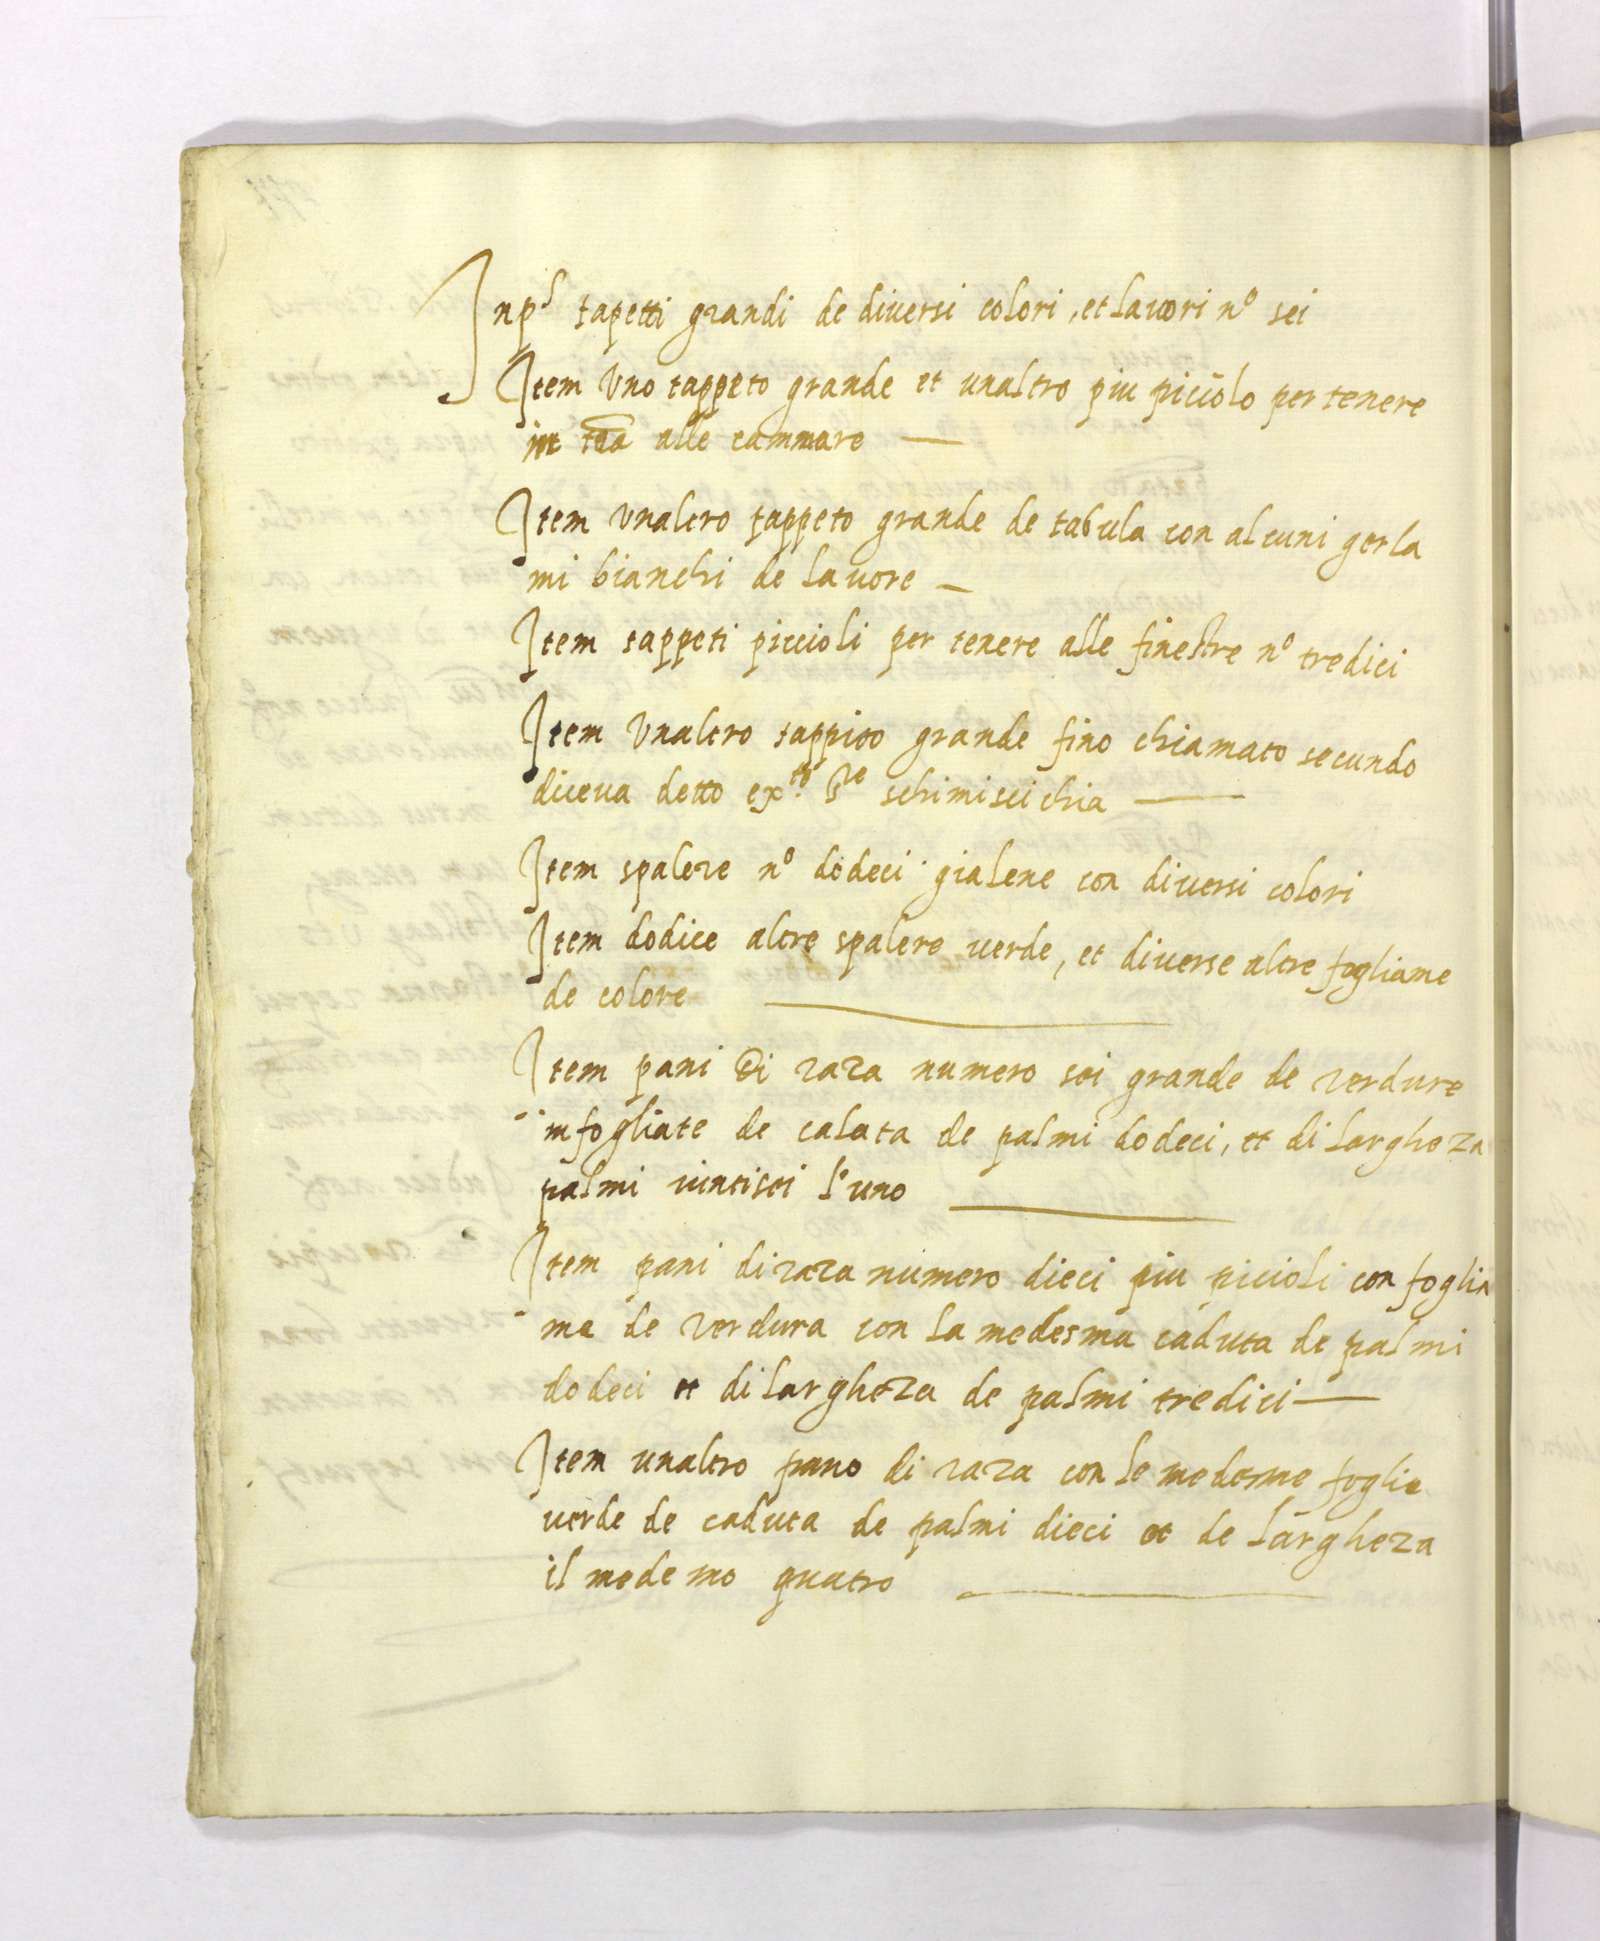 Inp.s tapetti grandi de diversi colori, et lavori n.o sei
Item Uno tappeto grande et unaltro piu picciolo per tenere
alle cammare —
Item Unaltro tappeto grande de tabula con alcuni gerla
mi bianchi de lavore —
Item tappeti piccioli per tenere alle finestre n.o tredici
Item Unaltro tappito grande fino chiamato secundo
diceva detto ex.to schimiscichia —
Item spalere n.o dodeci gialene con diversi colori
Item dodice altre spalere verde, et diverse altre fogliame
de colore —
Item pani di raza numero sei grande de verdure
infogliate de calata de palmi dodeci, et di largheza
palmi vintisei l'uno —
Item pani di raza numero dieci piu picioli con foglia
me de verdura con la medesma caduta de palmi
dodeci et di largheza de palmi tredici —
Item unaltro pano di raza con le medesme foglie
verde de caduta de palmi dieci et de largheza
il medemo quatro —